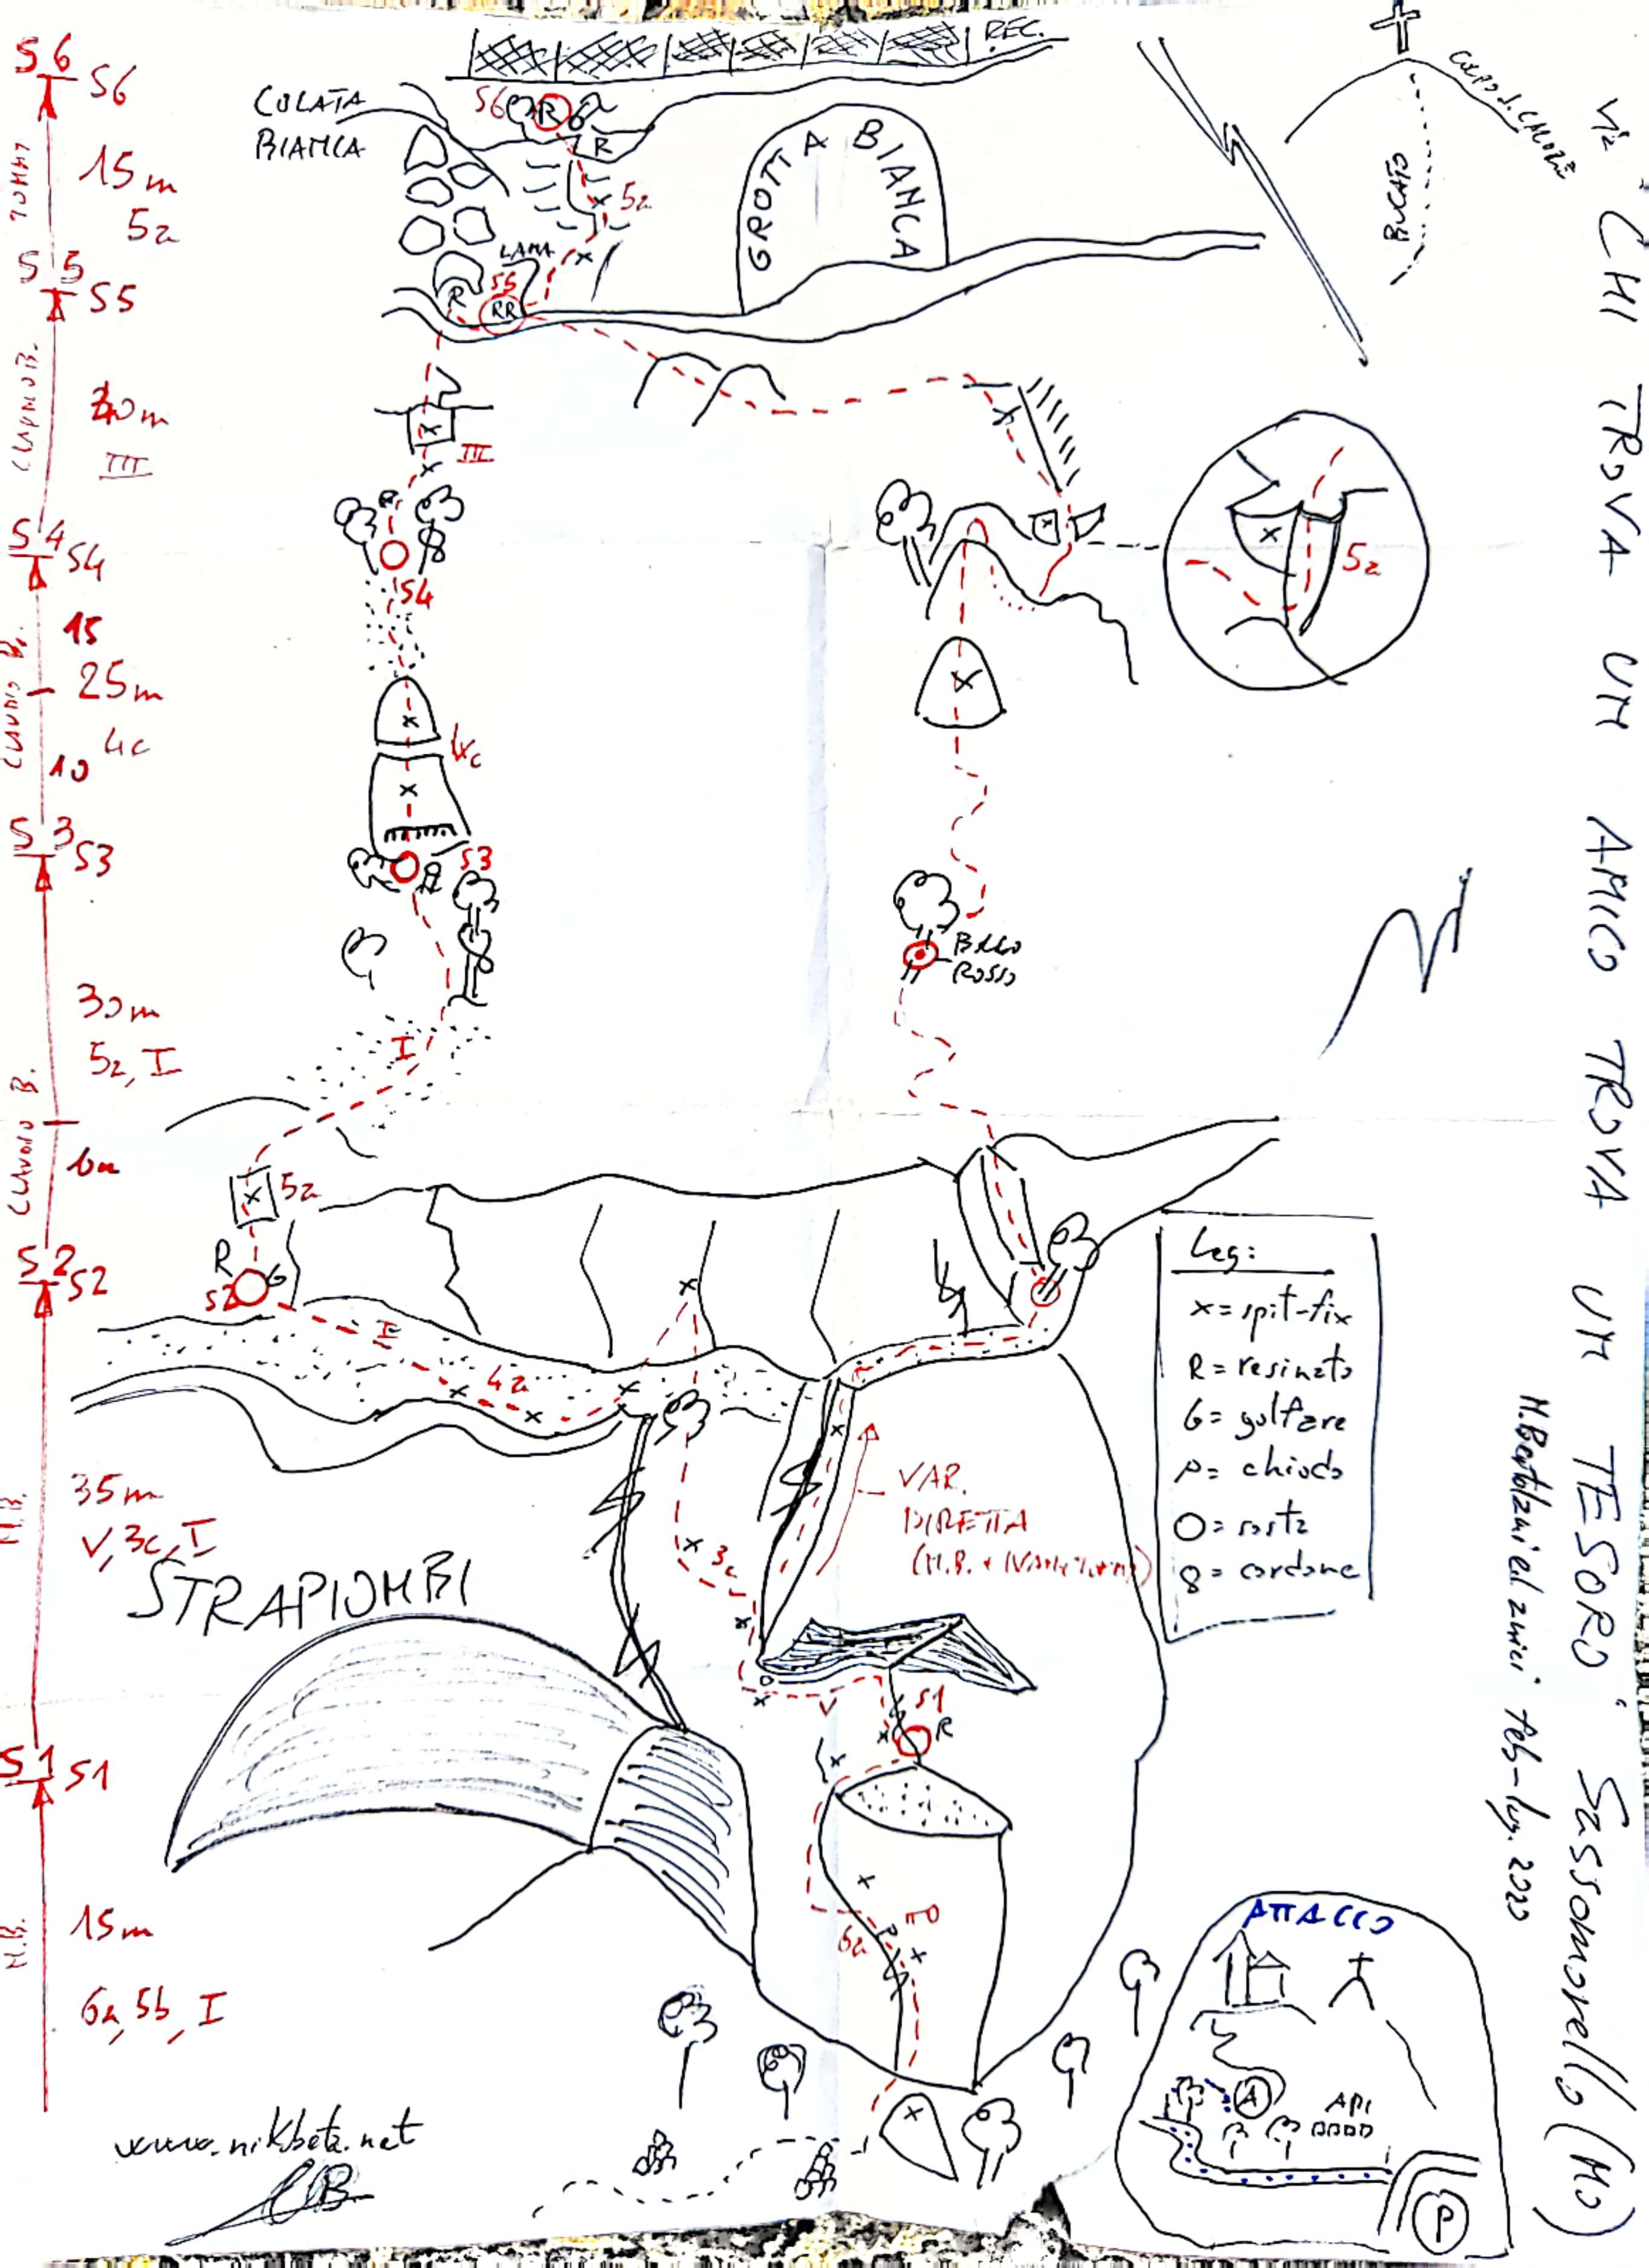 S6
S6
15m
5a
S5
S5
40m
III
S4
S4
15
25m
4c
10
S3
S3
30m
5a, I
CLAUDIO B.
CLAUDIO B.
CLAUDIO B.
S2
S2
M.B.
35m
V, 3c, I
S1
S1
M.B.
15m
6a, 5b, I
REC.
COLATA
BIANCA
S6
R
G
R
5a
LAMA
R
S5
RR
GROTTA BIANCA
BUCATO
III
S4
5a
4c
S3
BOLLO
ROSSO
I
5a
R
S2
G
I
4a
VAR.
DIRETTA
3c
STRAPIOMBI
V
S1
R
6a
Leg:
x = spit-fix
R = resinato
G = golfare
P = chiodo
O = sosta
8 = cordone
ATTACCO
A
API
P
www.nikbeta.net
Via "CHI TROVA UN AMICO TROVA UN TESORO" Sassomorello (MO)
feb-lug. 2020